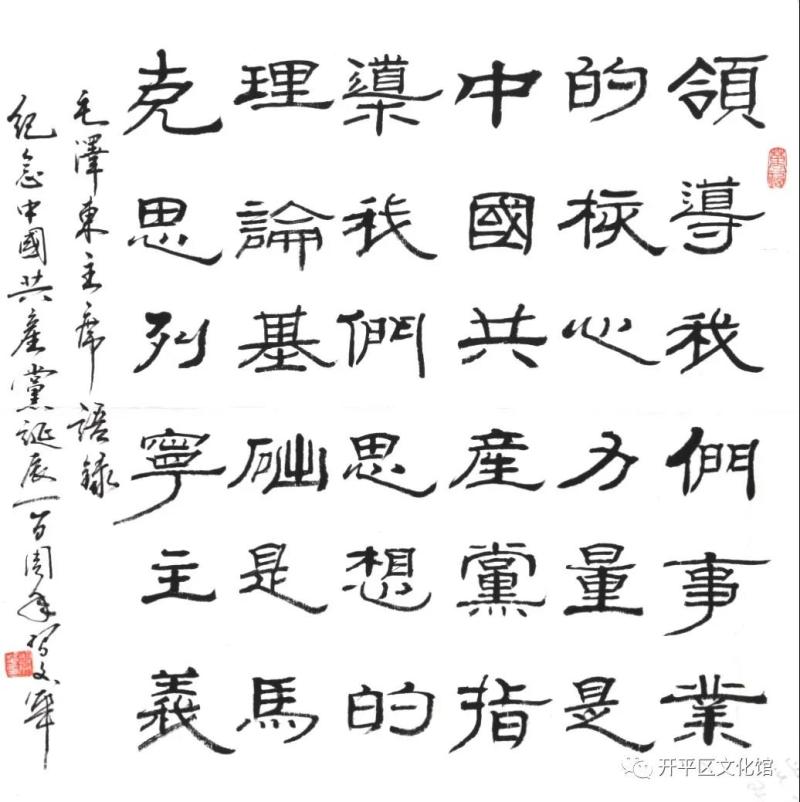 領導我們事業
的核心力量是
中國共産黨指
導我們思想的
理論基础是馬
克思列寧主義
毛澤東主席語錄
紀念中國共産黨誕辰一百周年
开平区文化馆